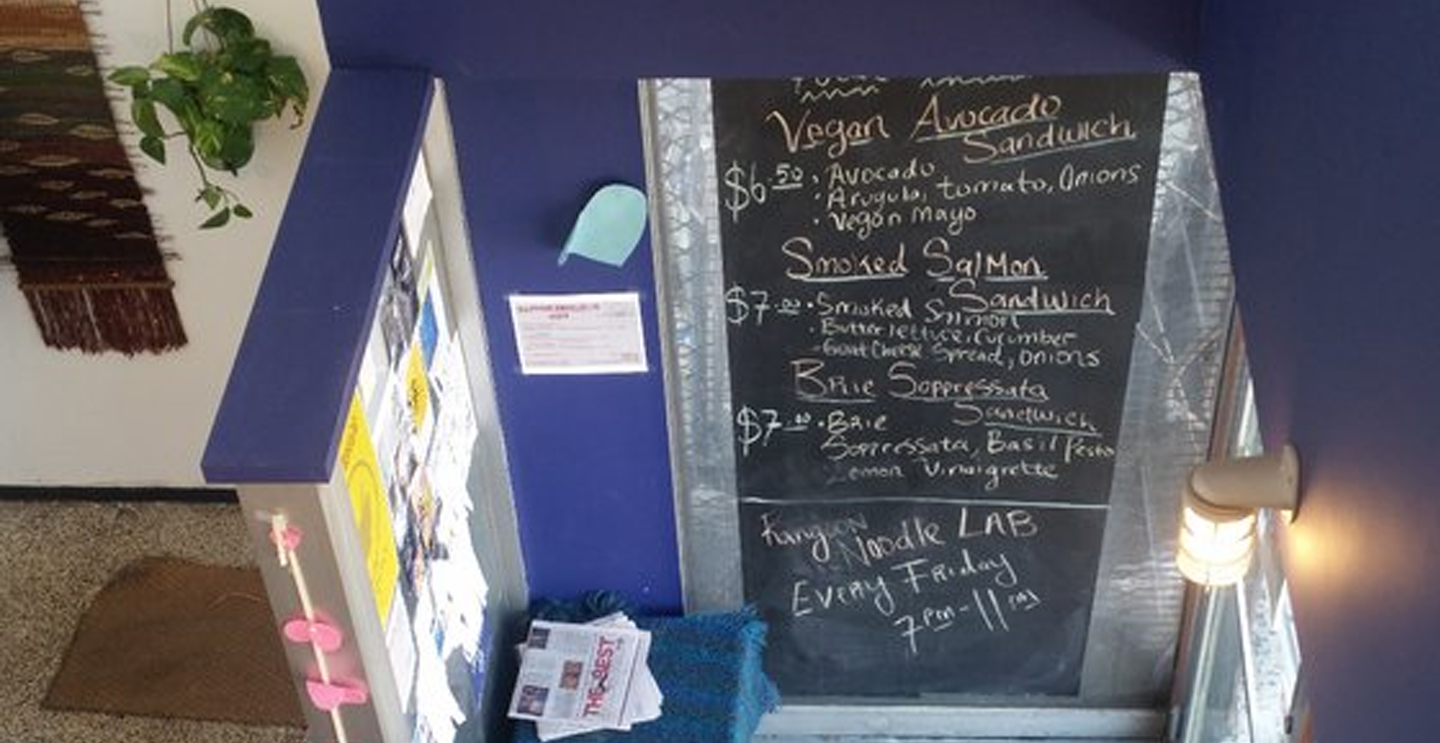 Vegan Avocado
Sandwich
$6.50 • Avocado
• Arugula, tomato, Onions
• Vegan Mayo
Smoked SalMon
Sandwich
$7.00 • Smoked Salmon
• Butter lettuce, Cucumber
- Goat Cheese Spread, onions
Brie Soppressata
Sandwich
$7.00 • Brie
Soppressata, Basil Pesto
Lemon Vinaigrette
Noodle LAB
EVERY Friday
7pm-11pm
THE BEST